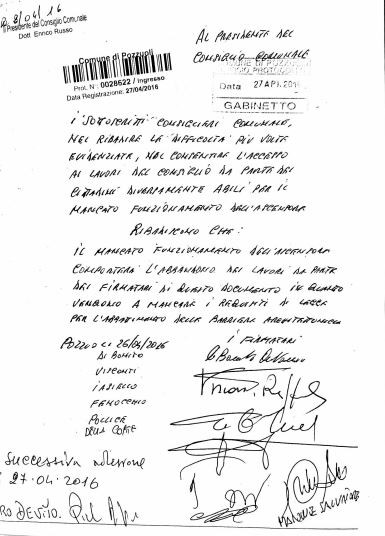 28/04/16
Il Presidente del Consiglio Comunale
Dott. Enrico Russo
AL PRESIDENTE DEL
CONSIGLIO COMUNALE
Comune di Pozzuoli
Prot. N° 0028622 / Ingresso
Data Registrazione: 27/04/2016
Data 27 APR. 2016
GABINETTO
I SOTTOSCRITTI CONSIGLIERI COMUNALI,
NEL RIBADIRE LE DIFFICOLTÀ PIÙ VOLTE
EVIDENZIATE, NEL CONSENTIRE L'ACCESSO
AI LAVORI DEL CONSIGLIO DA PARTE DEI
CITTADINI DIVERSAMENTE ABILI PER IL
MANCATO FUNZIONAMENTO DELL'ASCENSORE
RIBADISCONO CHE:
IL MANCATO FUNZIONAMENTO DELL'ASCENSORE
COMPORTERÀ L'ABBANDONO DEI LAVORI DA PARTE
DEI FIRMATARI DI QUESTO DOCUMENTO IN QUANTO
VENGONO A MANCARE I REQUISITI DI LEGGE
PER L'ABBATTIMENTO DELLE BARRIERE ARCHITETTONICHE
POZZUOLI 26/04/2016
I FIRMATARI
DI BONITO
VISCONTI
IASIELLO
FENOCCHIO
POLLICE
DELLA CORTE
SUCCESSIVA ADESIONE
27.04.2016
RO DEVITO.